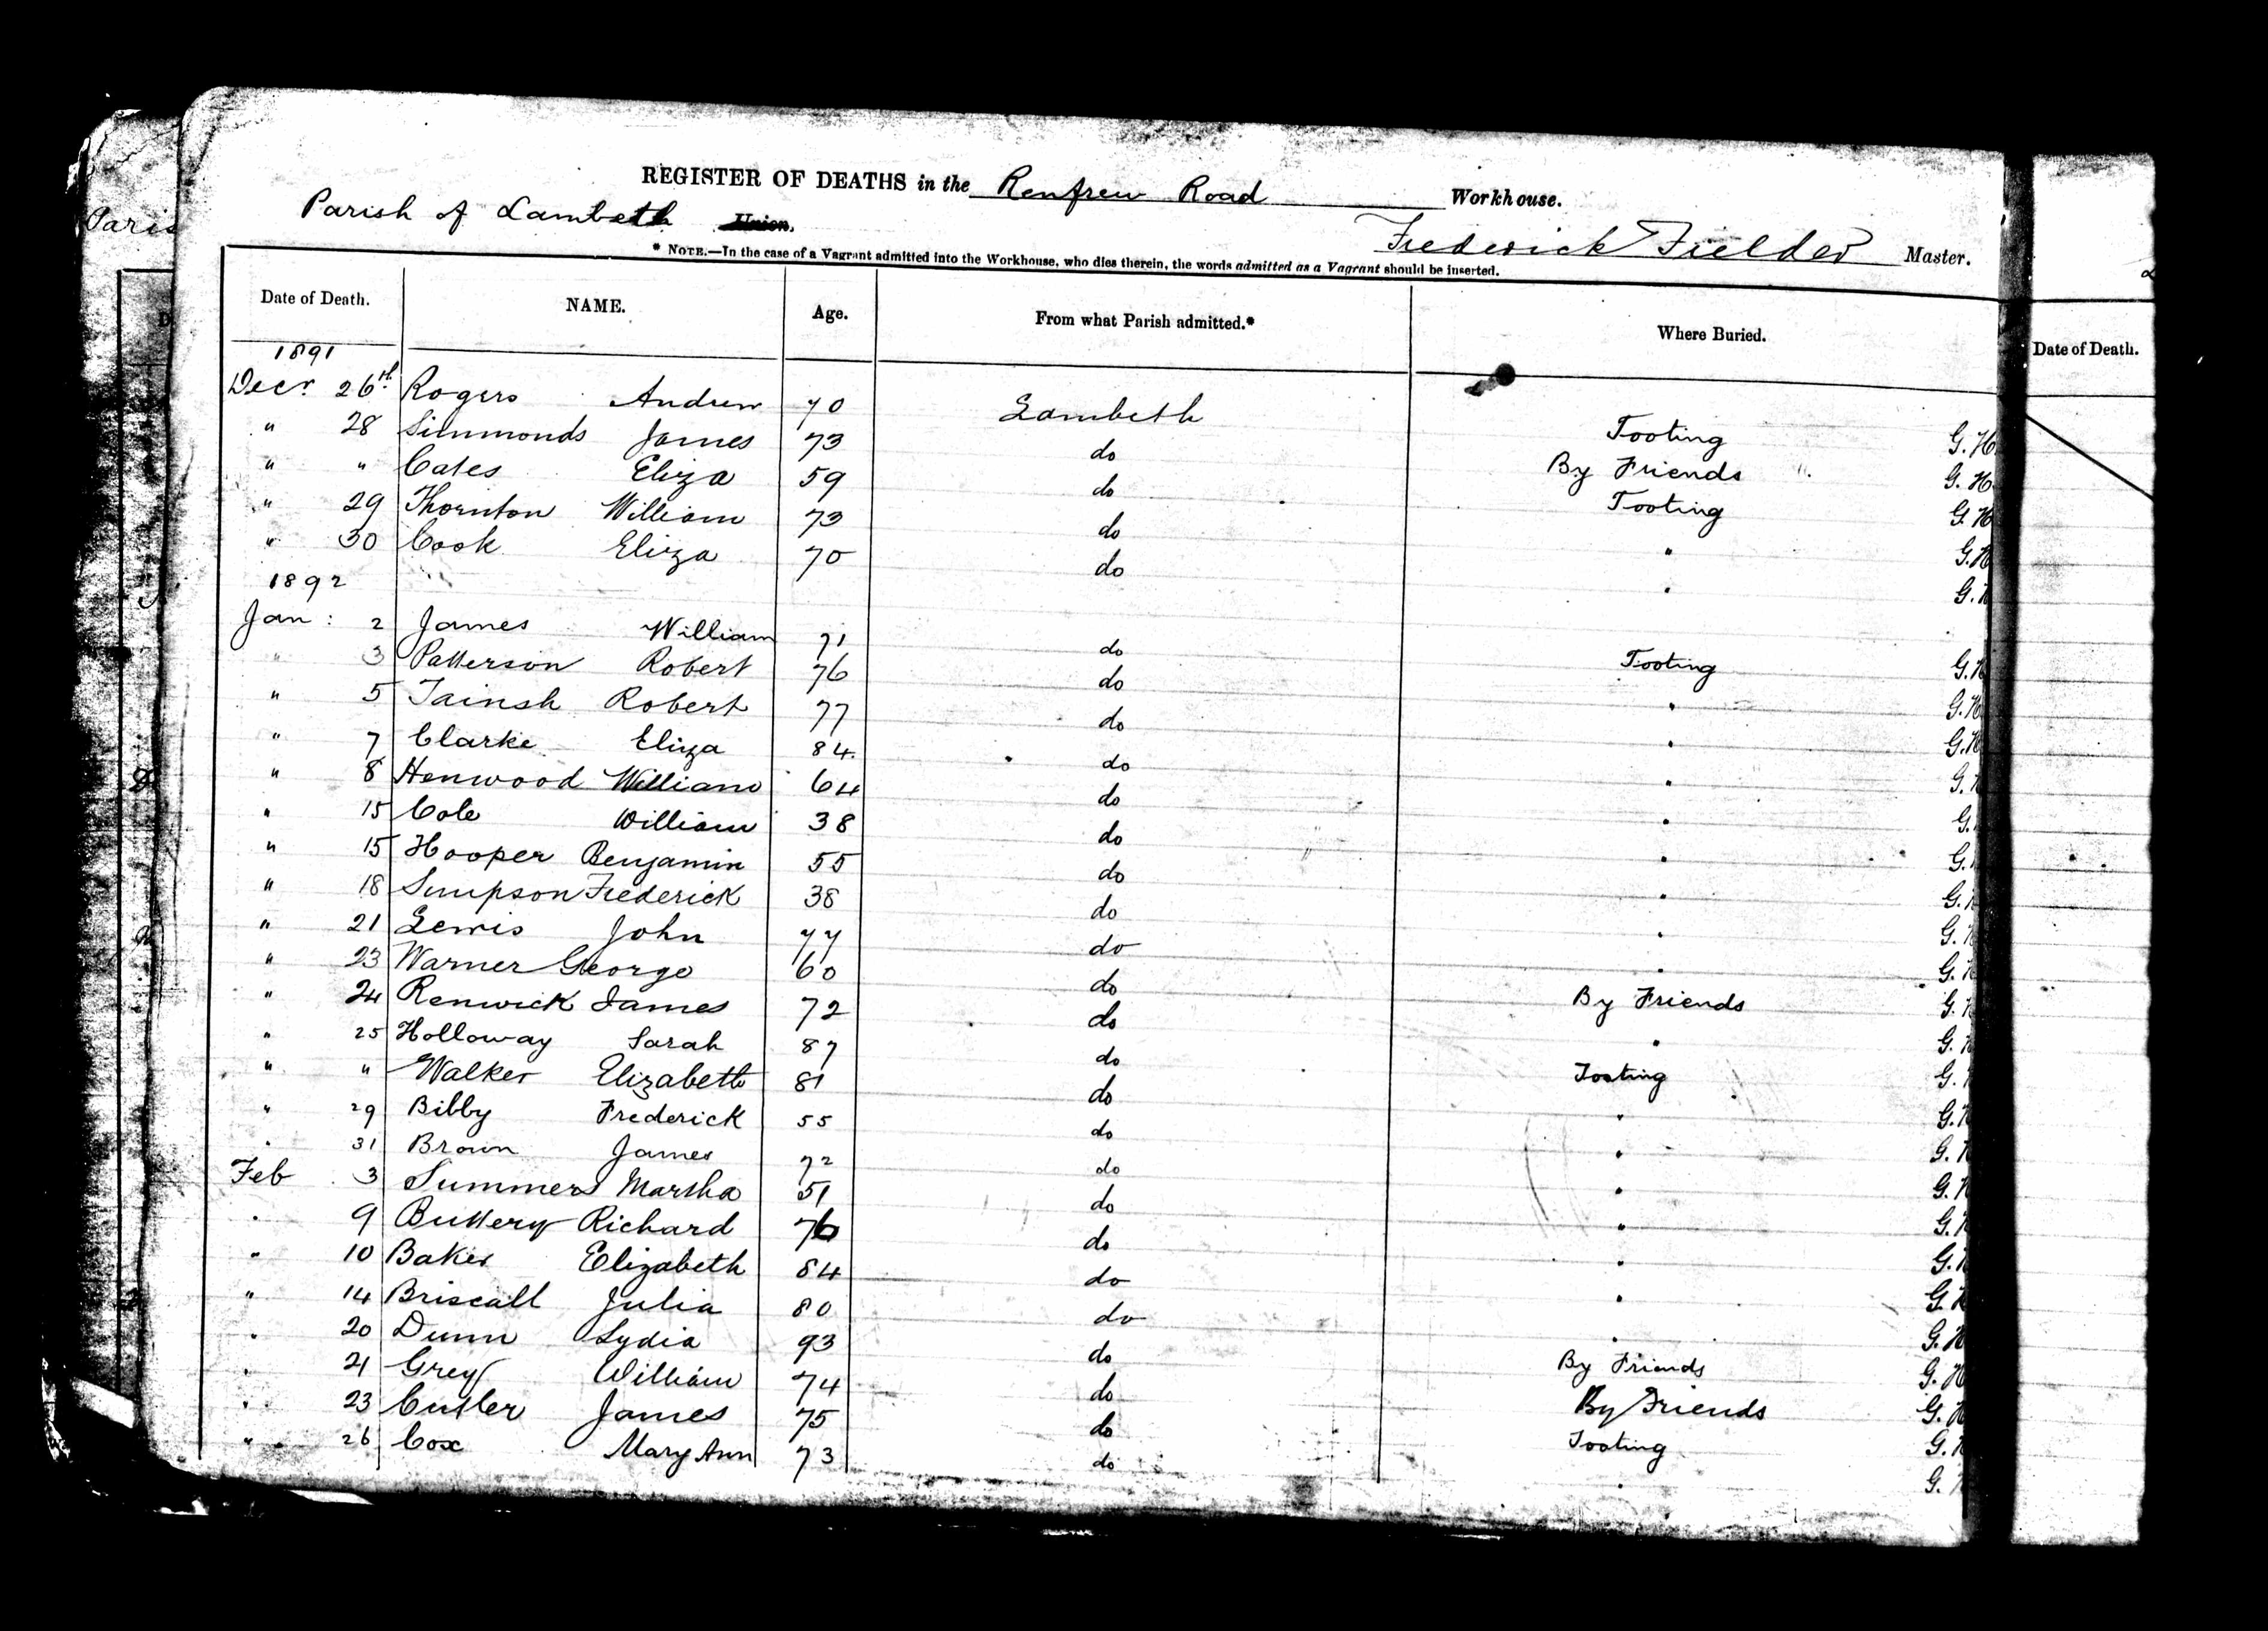 Paris
REGISTER OF DEATHS in the Renfrew Road Workhouse.
Parish of Lambeth Union,
Frederick Fielder Master.
* NOTE.—In the case of a Vagrant admitted into the Workhouse, who dies therein, the words admitted as a Vagrant should be inserted.
Date of Death. NAME. Age. From what Parish admitted.* Where Buried. Date of Death.
1891
Decr. 26th Rogers Andrew 70 Lambeth Tooting G.H
" 28 Simmonds James 73 do By Friends " G.H.
" " Cates Eliza 59 do Tooting G.H
" 29 Thornton William 73 do " G.H
" 30 Cook Eliza 70 do " G.H
1892
Jan: 2 James William 71 do Tooting G.H
" 3 Patterson Robert 76 do " G.H
" 5 Tainsh Robert 77 do " G.H
" 7 Clarke Eliza 84. do " G.H
" 8 Henwood William 64 do " G.
" 15 Cole William 38 do " G.
" 15 Hooper Benjamin 55 do " G.H
" 18 Simpson Frederick 38 do " G.H
" 21 Lewis John 77 do " G.H
" 23 Warner George 60 do By Friends G.H
" 24 Renwick James 72 do " G.H
" 25 Holloway Sarah 87 do Tooting G.H
" " Walker Elizabeth 81 do " G.H
" 29 Bibby Frederick 55 do " G.H
" 31 Brown James 72 do " G.H
Feb 3 Summers Martha 51 do " G.H
" 9 Buttery Richard 76 do " G.H
" 10 Baker Elizabeth 84 do " G.H
" 14 Briscall Julia 80 do " G.H
" 20 Dunn Lydia 93 do By Friends G.H
" 21 Grey William 74 do By Friends G.H
" 23 Cutler James 75 do Tooting G.H
" 26 Cox Mary Ann 73 do " G.H